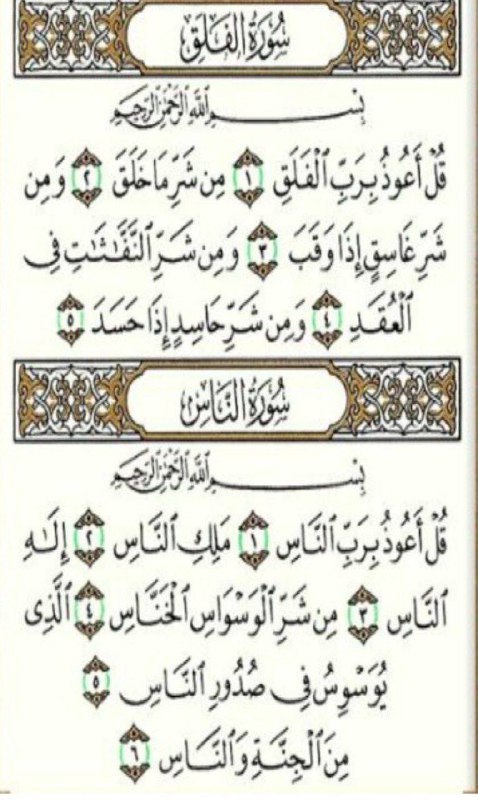 سُورَةُ الفَلَقِ
بِسْمِ ٱللَّهِ ٱلرَّحْمَٰنِ ٱلرَّحِيمِ
قُلْ أَعُوذُ بِرَبِّ ٱلْفَلَقِ ١ مِن شَرِّ مَا خَلَقَ ٢ وَمِن
شَرِّ غَاسِقٍ إِذَا وَقَبَ ٣ وَمِن شَرِّ ٱلنَّفَّٰثَٰتِ فِى
ٱلْعُقَدِ ٤ وَمِن شَرِّ حَاسِدٍ إِذَا حَسَدَ ٥
سُورَةُ النَّاسِ
بِسْمِ ٱللَّهِ ٱلرَّحْمَٰنِ ٱلرَّحِيمِ
قُلْ أَعُوذُ بِرَبِّ ٱلنَّاسِ ١ مَلِكِ ٱلنَّاسِ ٢ إِلَٰهِ
ٱلنَّاسِ ٣ مِن شَرِّ ٱلْوَسْوَاسِ ٱلْخَنَّاسِ ٤ ٱلَّذِى
يُوَسْوِسُ فِى صُدُورِ ٱلنَّاسِ ٥
مِنَ ٱلْجِنَّةِ وَٱلنَّاسِ ٦